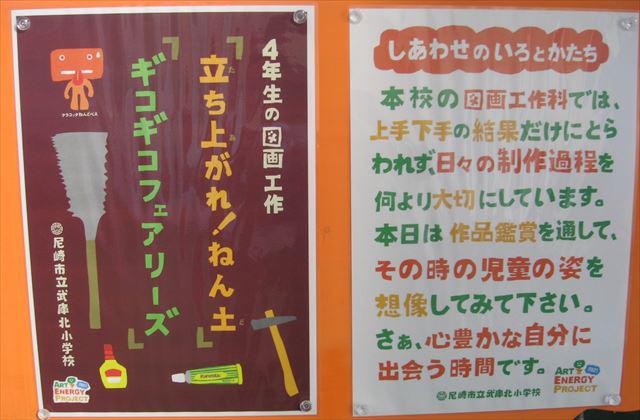 4年生の図画工作
「立ち上がれ!ねん土」
た
あ
ど
「ギコギコフェアリーズ」
テラコッタねんどべえ
尼崎市立武庫北小学校
ART
ENERGY
PROJECT
しあわせのいろとかたち
本校の図画工作科では、
上手下手の結果だけにとら
われず、日々の制作過程を
何より大切にしています。
本日は作品鑑賞を通して、
その時の児童の姿を
想像してみて下さい。
さぁ、心豊かな自分に
出会う時間です。
尼崎市立武庫北小学校
ART
ENERGY
PROJECT